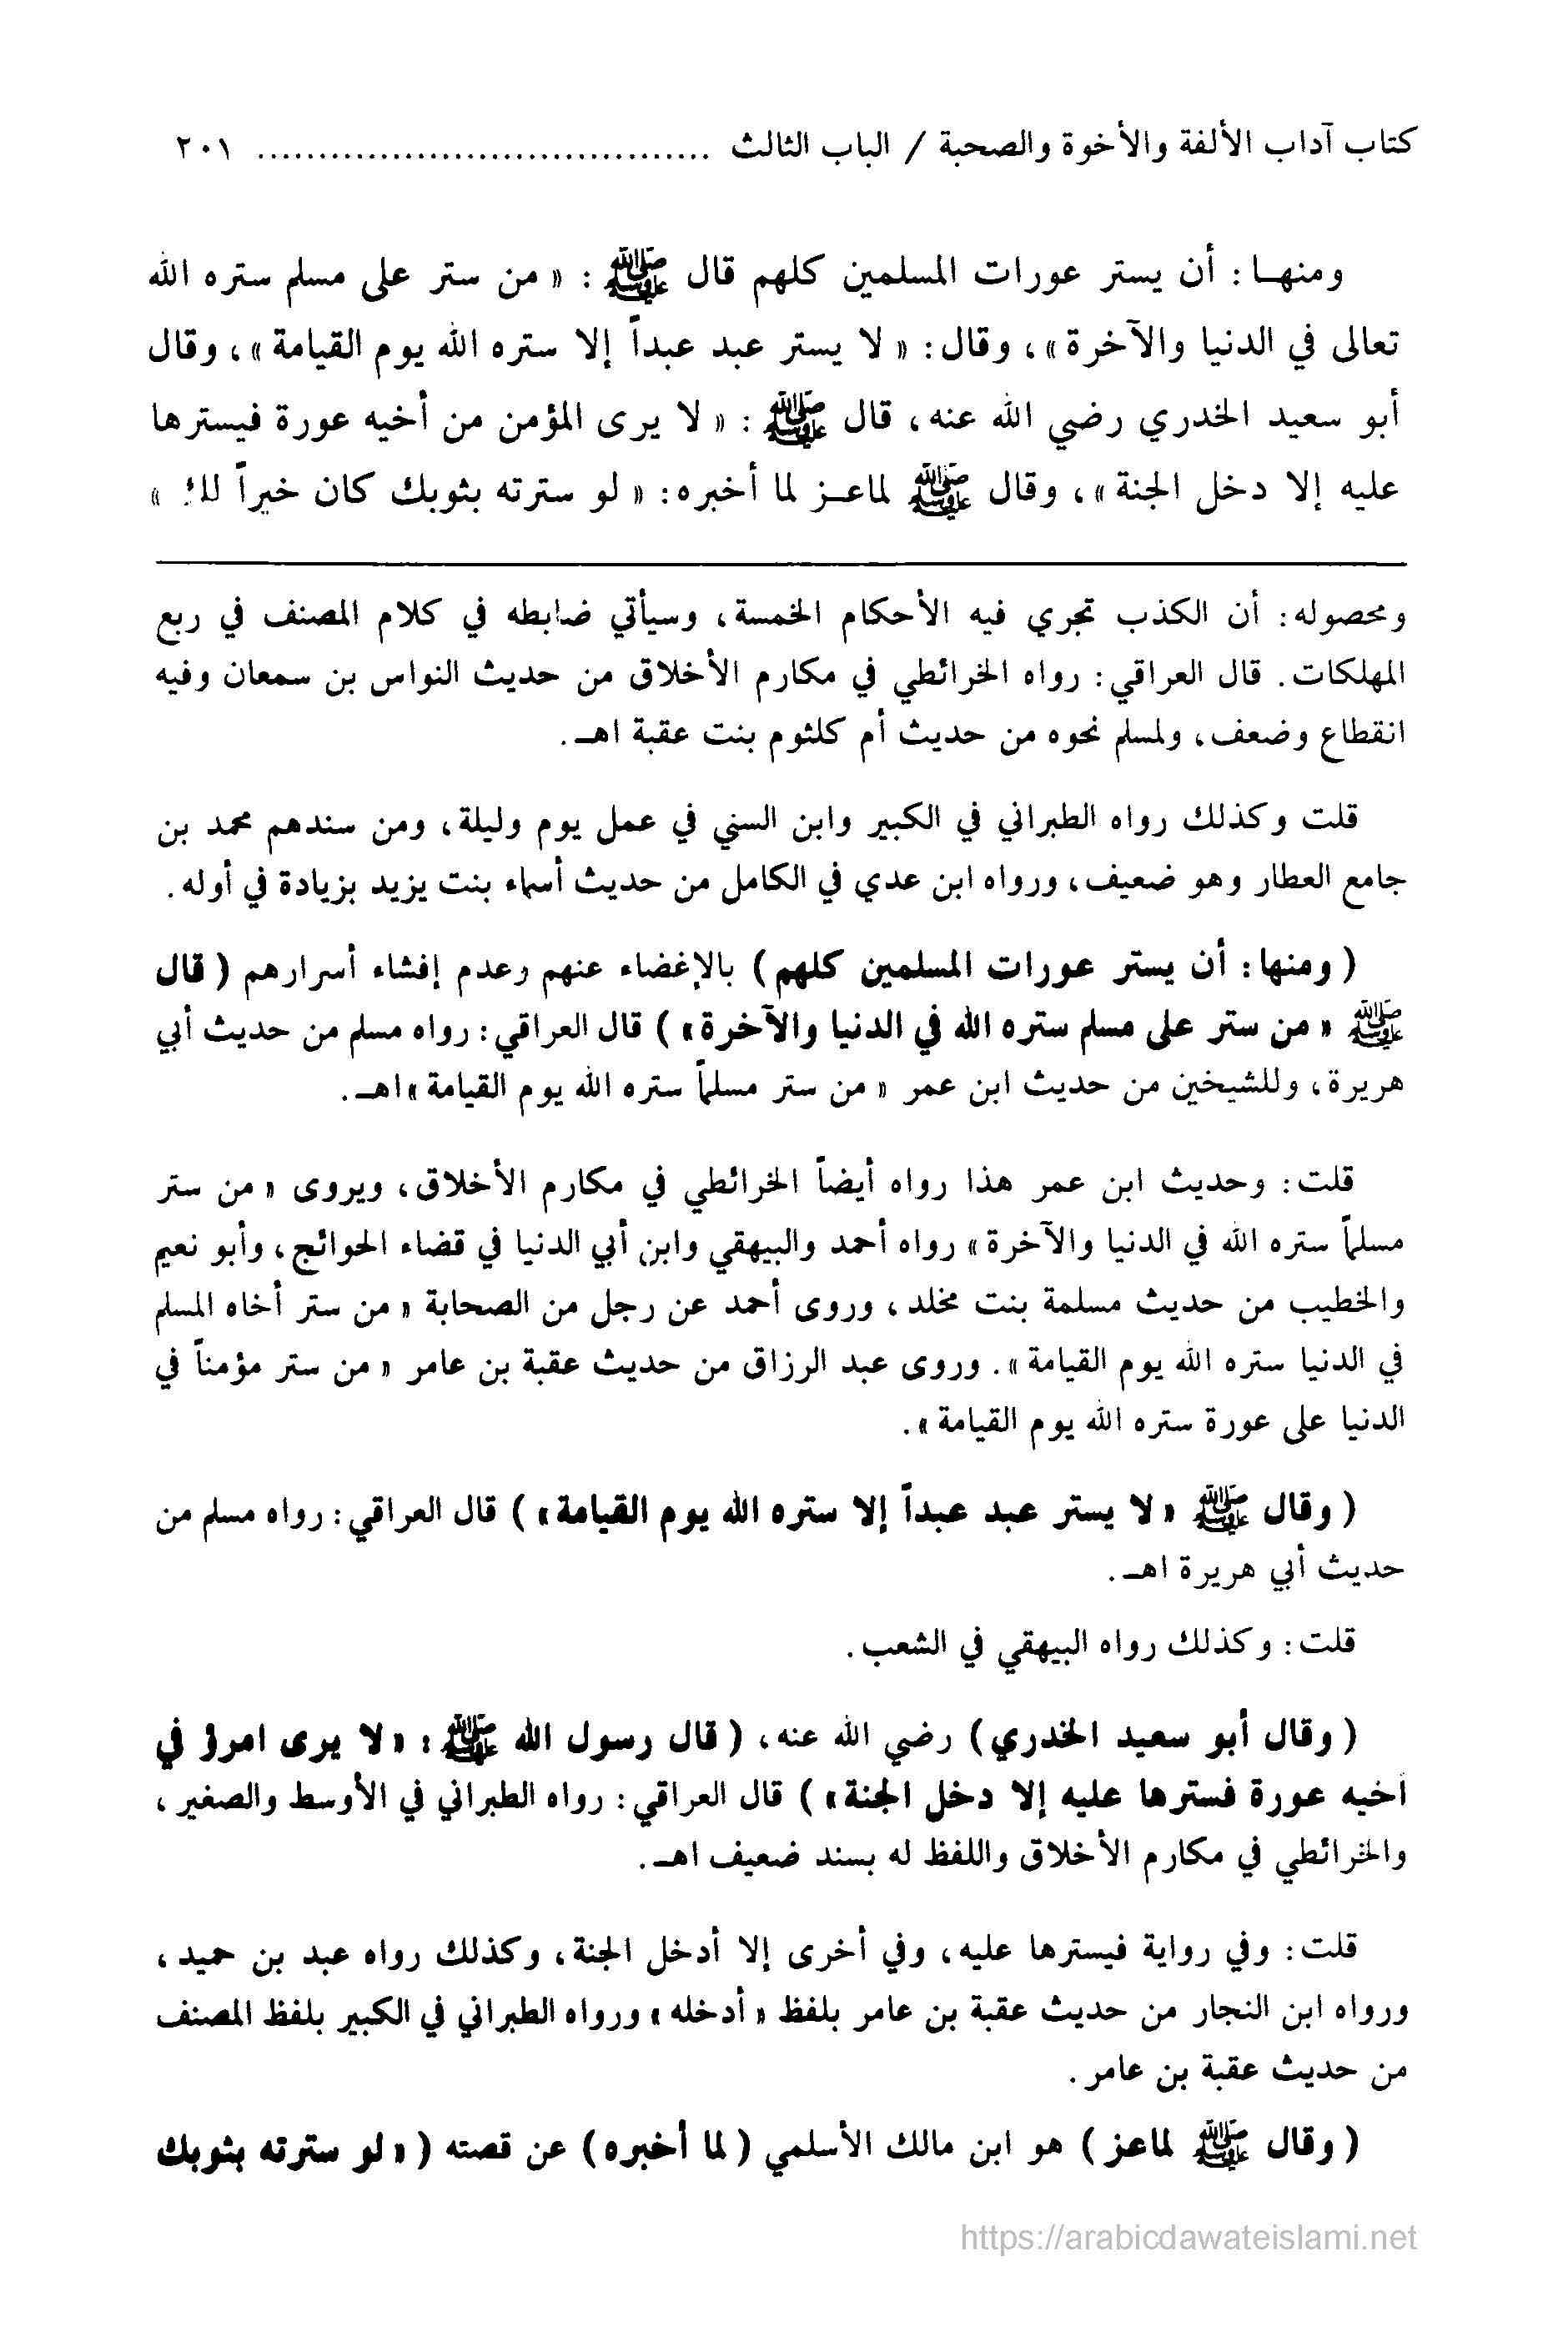 كتاب آداب الألفة والأخوة والصحبة / الباب الثالث ..................................... ٢٠١
ومنهـا: أن يستر عورات المسلمين كلهم قال ﷺ : « من ستر على مسلم ستره الله
تعالى في الدنيا والآخرة »، وقال: « لا يستر عبد عبداً إلا ستره الله يوم القيامة »، وقال
أبو سعيد الخدري رضي الله عنه، قال ﷺ : « لا يرى المؤمن من أخيه عورة فيسترها
عليه إلا دخل الجنة »، وقال ﷺ لماعـز لما أخبره: « لو سترته بثوبك كان خيراً لك »
ومحصوله: أن الكذب تجري فيه الأحكام الخمسة، وسيأتي ضابطه في كلام المصنف في ربع
المهلكات. قال العراقي: رواه الخرائطي في مكارم الأخلاق من حديث النواس بن سمعان وفيه
انقطاع وضعف، ولمسلم نحوه من حديث أم كلثوم بنت عقبة اهـ.
قلت وكذلك رواه الطبراني في الكبير وابن السني في عمل يوم وليلة، ومن سندهم محمد بن
جامع العطار وهو ضعيف، ورواه ابن عدي في الكامل من حديث أسماء بنت يزيد بزيادة في أوله.
( ومنها: أن يستر عورات المسلمين كلهم ) بالإغضاء عنهم وعدم إفشاء أسرارهم ( قال
ﷺ « من ستر على مسلم ستره الله في الدنيا والآخرة» ) قال العراقي: رواه مسلم من حديث أبي
هريرة، وللشيخين من حديث ابن عمر « من ستر مسلماً ستره الله يوم القيامة »اهـ.
قلت: وحديث ابن عمر هذا رواه أيضاً الخرائطي في مكارم الأخلاق، ويروى « من ستر
مسلماً ستره الله في الدنيا والآخرة » رواه أحمد والبيهقي وابن أبي الدنيا في قضاء الحوائج، وأبو نعيم
والخطيب من حديث مسلمة بنت مخلد، وروى أحمد عن رجل من الصحابة « من ستر أخاه المسلم
في الدنيا ستره الله يوم القيامة ». وروى عبد الرزاق من حديث عقبة بن عامر « من ستر مؤمناً في
الدنيا على عورة ستره الله يوم القيامة ».
( وقال ﷺ « لا يستر عبد عبداً إلا ستره الله يوم القيامة» ) قال العراقي: رواه مسلم من
حديث أبي هريرة اهـ.
قلت: وكذلك رواه البيهقي في الشعب.
( وقال أبو سعيد الخدري ) رضي الله عنه، ( قال رسول الله ﷺ : « لا يرى امرؤ في
أخيه عورة فسترها عليه إلا دخل الجنة» ) قال العراقي: رواه الطبراني في الأوسط والصغير،
والخرائطي في مكارم الأخلاق واللفظ له بسند ضعيف اهـ.
قلت: وفي رواية فيسترها عليه، وفي أخرى إلا أدخل الجنة، وكذلك رواه عبد بن حميد،
ورواه ابن النجار من حديث عقبة بن عامر بلفظ « أدخله » ورواه الطبراني في الكبير بلفظ المصنف
من حديث عقبة بن عامر.
( وقال ﷺ لماعز ) هو ابن مالك الأسلمي ( لما أخبره ) عن قصته ( « لو سترته بثوبك
https://arabicdawateislami.net